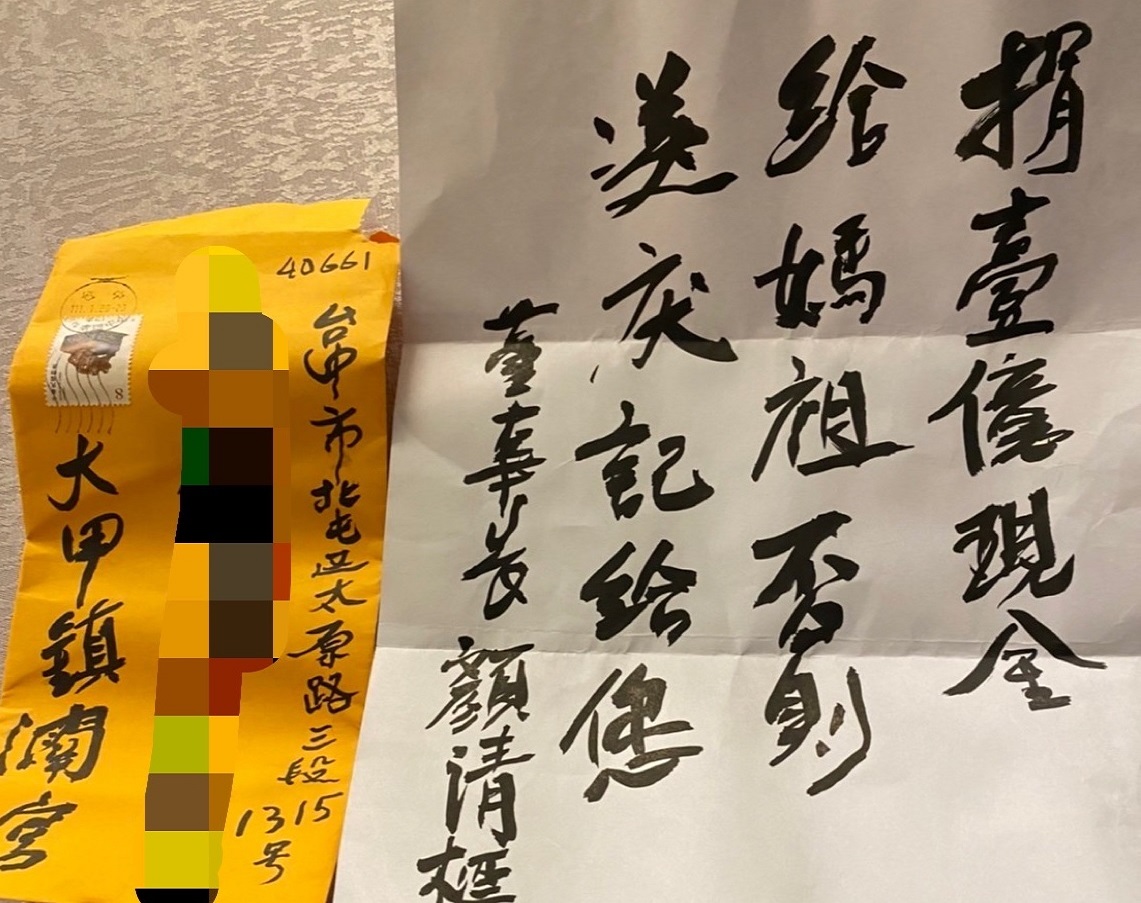 捐壹億現金
給媽祖否則
送庆記給您
董事長 顏清標
40661
台中市北屯区太原路三段
1315号
大甲鎮瀾宮
8